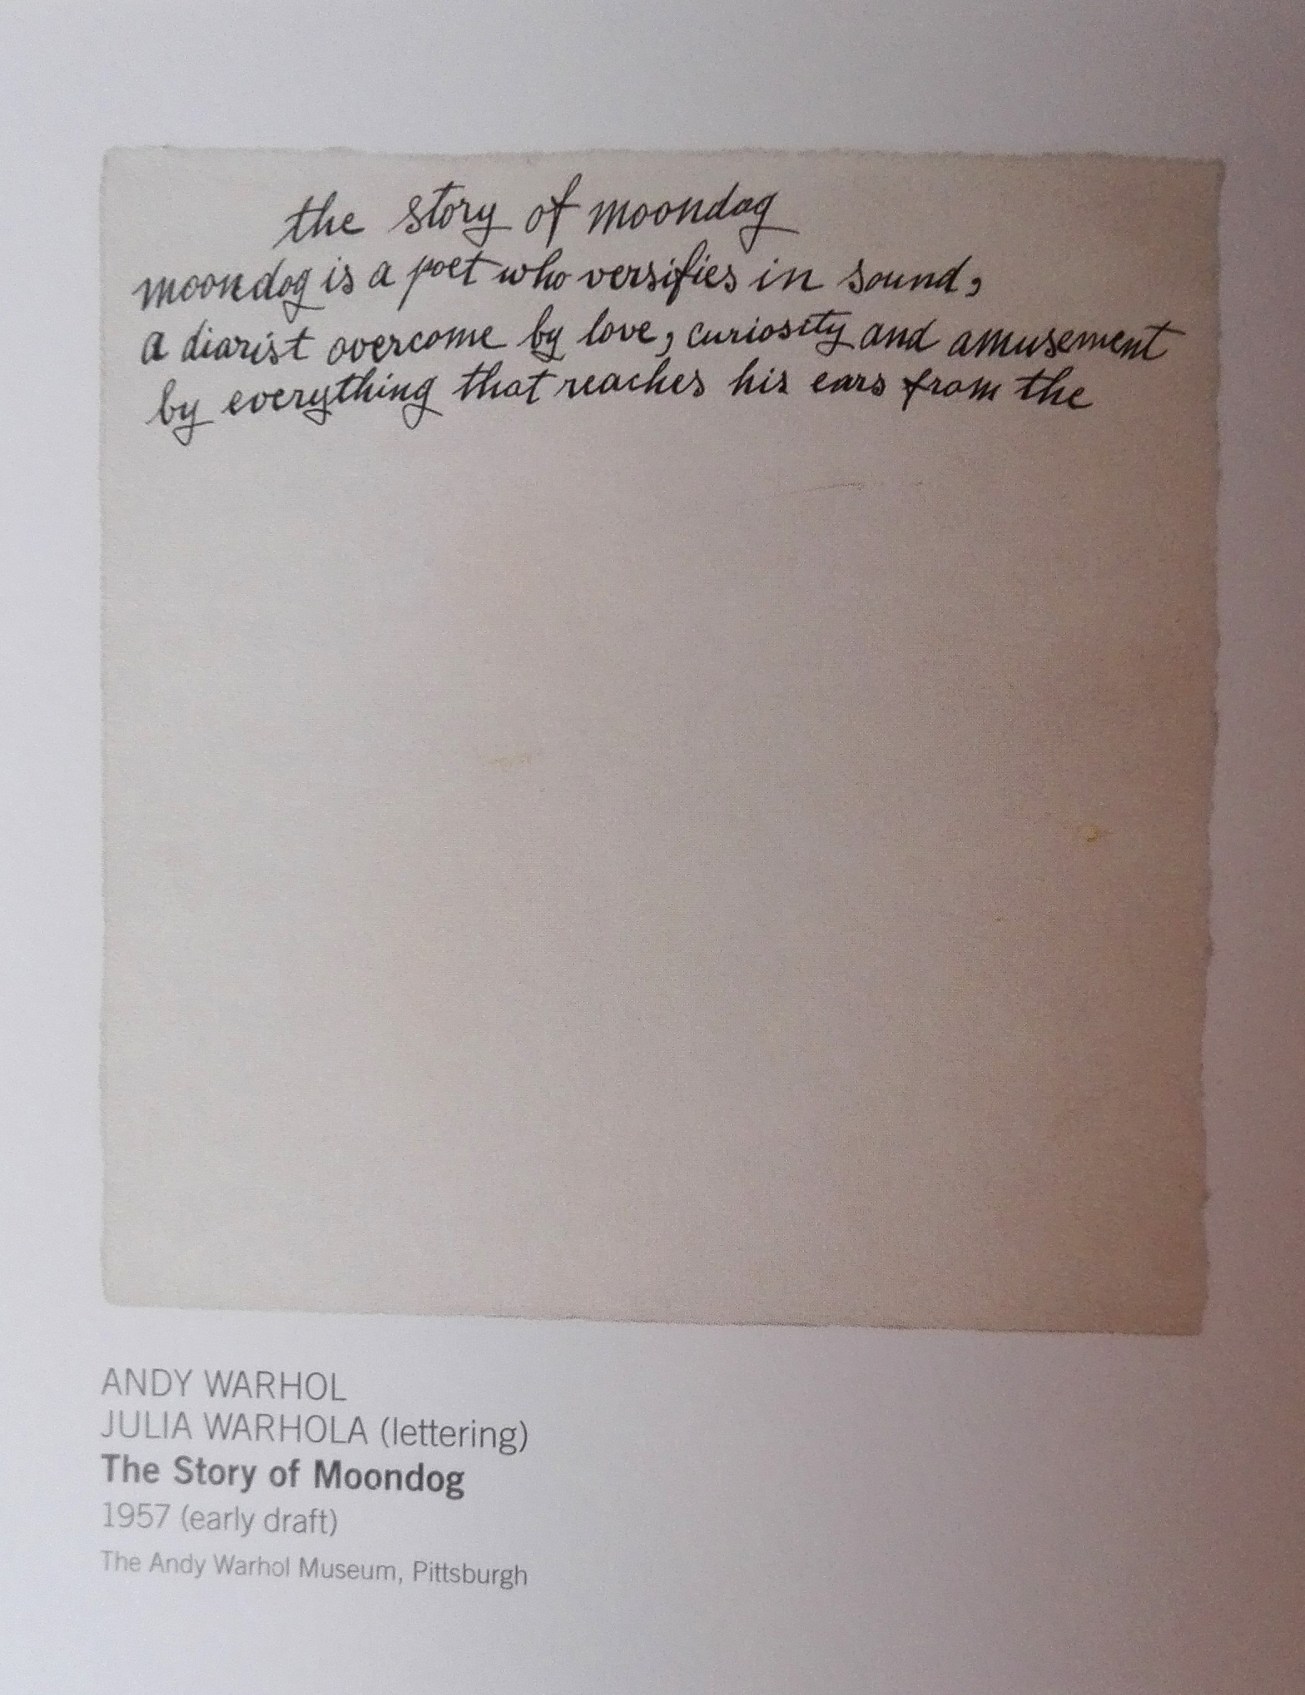 the story of moondog
moondog is a poet who versifies in sound,
a diarist overcome by love, curiosity and amusement
by everything that reaches his ears from the
ANDY WARHOL
JULIA WARHOLA (lettering)
The Story of Moondog
1957 (early draft)
The Andy Warhol Museum, Pittsburgh